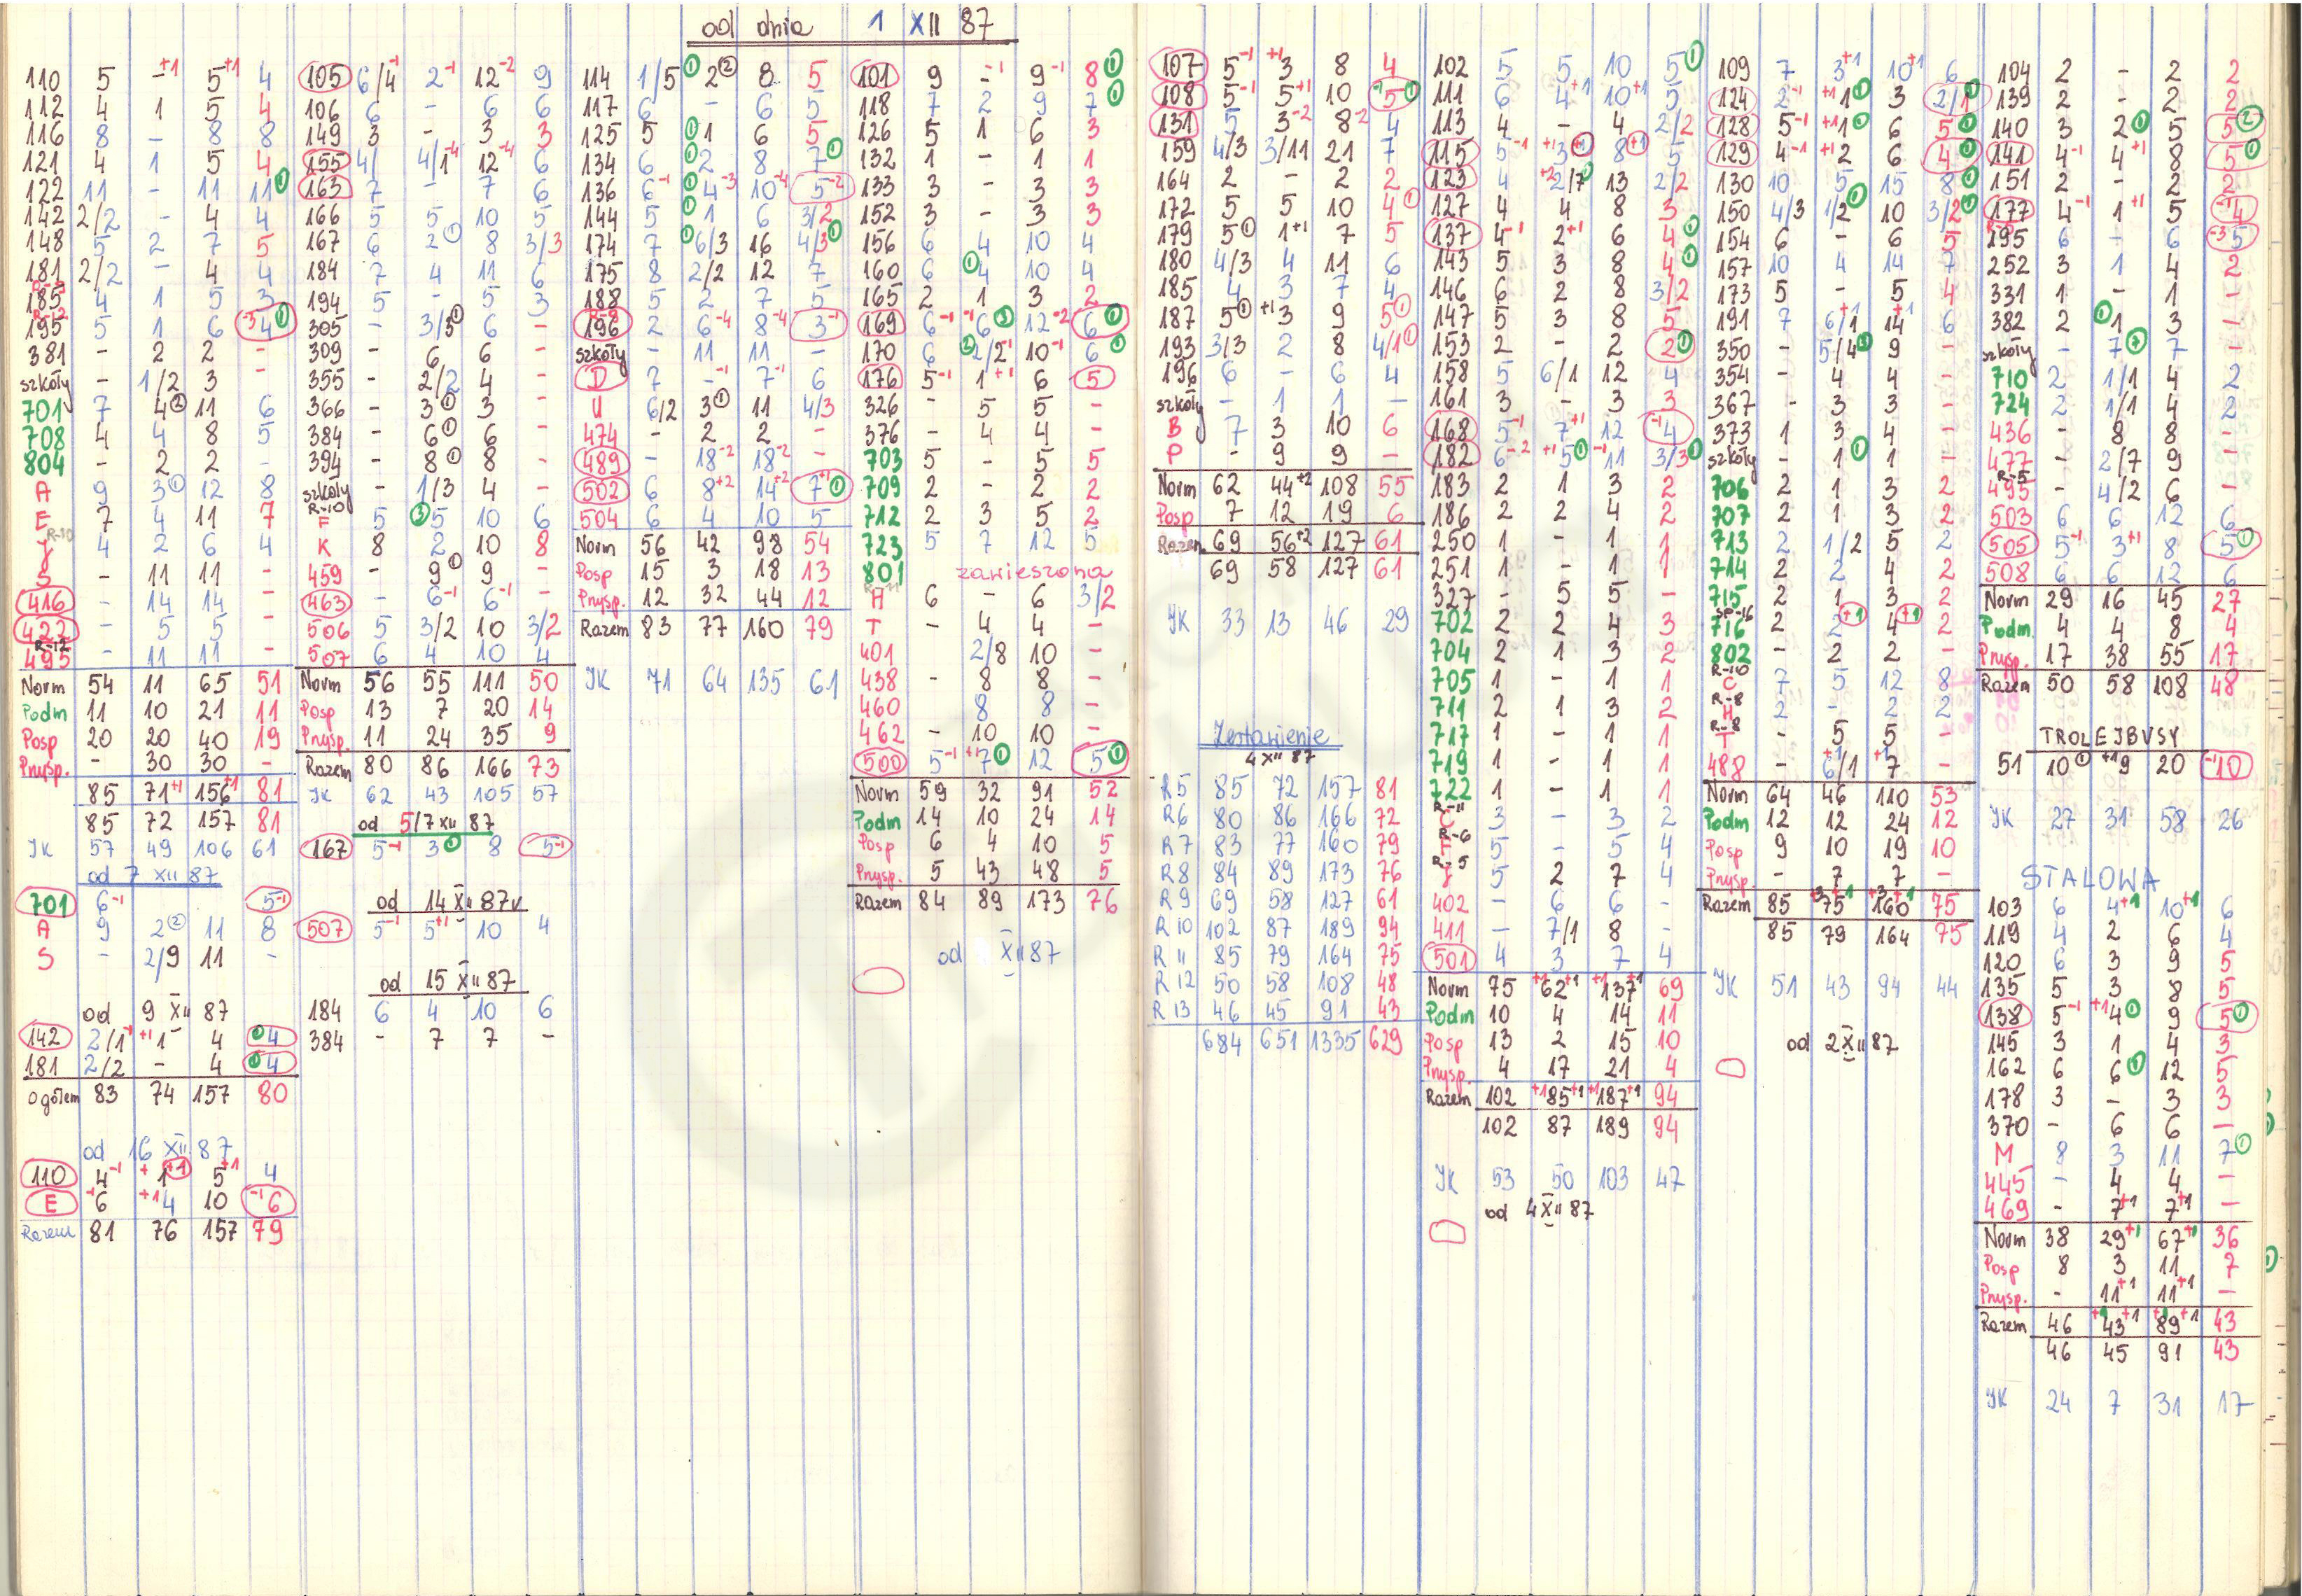 od dnia 1 XII 87
110 5 -+1 5+1 4
112 4 1 5 4
116 8 - 8 8
121 4 1 5 4
122 11 - 11 11 1
142 2/2 - 4 4
148 5 2 7 5
181 2/2 - 4 4
185 4 1 5 3
R-12
195 5 1 6 -3 4 1
381 - 2 2 -
szkoły - 1/2 3 -
701 7 4 2 11 6
708 4 4 8 5
804 - 2 2 -
A 9 3 1 12 8
E 7 4 11 7
R-10
J 4 2 6 4
S - 11 11 -
416 - 14 14 -
422 - 5 5 -
R-12
495 - 11 11 -
Norm 54 11 65 51
Podm 11 10 21 11
Posp 20 20 40 19
Przysp. - 30 30 -
85 71+1 156+1 81
85 72 157 81
JK 57 49 106 61
od 7 XII 87
701 6-1 5-1
A 9 2 2 11 8
S - 2/9 11 -
od 9 XII 87
142 2/1-1 +1 1- 4 0 4
181 2/2 - 4 0 4
ogółem 83 74 157 80
od 16 XII 87
110 4-1 + 1+1 5+1 4
E -1 6 +1 4 10 -1 6
Razem 81 76 157 79
105 6/4-1 2-1 12-2 9
106 6 - 6 6
149 3 - 3 3
155 4/ 4/1-4 12-4 6
163 7 - 7 6
166 5 5 10 5
167 6 2 1 8 3/3
184 7 4 11 6
194 5 - 5 3
305 - 3/3 1 6 -
309 - 6 6 -
355 - 2/2 4 -
366 - 3 1 3 -
384 - 6 1 6 -
394 - 8 1 8 -
szkoły - 1/3 4 -
R-10
F 5 3 5 10 6
K 8 2 10 8
459 - 9 1 9 -
463 - 6-1 6-1 -
506 5 3/2 10 3/2
507 6 4 10 4
Norm 56 55 111 50
Posp 13 7 20 14
Przysp. 11 24 35 9
Razem 80 86 166 73
JK 62 43 105 57
od 5/7 XII 87
167 5-1 3 1 8 5-1
od 14 XII 87
507 5-1 5+1 10 4
od 15 XII 87
184 6 4 10 6
384 - 7 7 -
114 1/5 1 2 2 8 5
117 6 - 6 5
125 5 1 1 6 5
134 6 1 2 8 7 1
136 6-1 1 4-3 10-4 5-2
144 5 1 1 6 3/2
174 7 1 6/3 16 4/3 1
175 8 2/2 12 7
188 5 2 7 5
R-8
196 2 6-4 8-4 3-1
szkoły - 11 11 -
D 7 --1 7-1 6
U 6/2 3 1 11 4/3
474 - 2 2 -
489 - 18-2 18-2 -
502 6 8+2 14+2 7+1 1
504 6 4 10 5
Norm 56 42 98 54
Posp 15 3 18 13
Przysp. 12 32 44 12
Razem 83 77 160 79
JK 71 64 135 61
101 9 --1 9-1 8 1
118 7 2 9 7 1
126 5 1 6 3
132 1 - 1 1
133 3 - 3 3
152 3 - 3 3
156 6 4 10 4
160 6 1 4 10 4
165 2 1 3 2
169 6-1 -1 6 3 12-2 6 1
170 6 2 2/2-1 10-1 6 1
176 5-1 1+1 6 5
326 - 5 5 -
376 - 4 4 -
703 5 - 5 5
709 2 - 2 2
712 2 3 5 2
723 5 7 12 5
801 zawieszona
R-11
H 6 - 6 3/2
T - 4 4 -
401 2/8 10 -
438 - 8 8 -
460 8 8 -
462 - 10 10 -
500 5-1 +1 7 1 12 5 1
Norm 59 32 91 52
Podm 14 10 24 14
Posp 6 4 10 5
Przysp. 5 43 48 5
Razem 84 89 173 76
od XII 87
107 5-1 +1 3 8 4
108 5-1 5+1 10 -1 5 1
131 5 3-2 8-2 4
159 4/3 3/11 21 7
164 2 - 2 2
172 5 5 10 4 1
179 5 1 1+1 7 5
180 4/3 4 11 6
185 4 3 7 4
187 5 1 +1 3 9 5 1
193 3/3 2 8 4/1 1
196 6 - 6 4
szkoły - 1 1 -
B 7 3 10 6
P - 9 9 -
Norm 62 44+2 108 55
Posp 7 12 19 6
Razem 69 56+2 127 61
69 58 127 61
JK 33 13 46 29
Zestawienie
4 XII 87
R5 85 72 157 81
R6 80 86 166 72
R7 83 77 160 79
R8 84 89 173 76
R9 69 58 127 61
R10 102 87 189 94
R11 85 79 164 75
R12 50 58 108 48
R13 46 45 91 43
684 651 1335 629
102 5 5 10 5 1
111 6 4+1 10+1 5
113 4 - 4 2/2
115 5-1 +1 3+1 8+1 5
123 4 +2 2/7 13 2/2
127 4 4 8 3
137 4-1 2+1 6 4 1
143 5 3 8 4 1
146 6 2 8 3/2
147 5 3 8 5
153 2 - 2 2 1
158 5 6/1 12 4
161 3 - 3 3
168 5-1 7+1 12 -1 4
182 6-2 +1 5 1 -1 11 3/3 1
183 2 1 3 2
186 2 2 4 2
250 1 - 1 1
251 1 - 1 1
327 - 5 5 -
702 2 2 4 3
704 2 1 3 2
705 1 - 1 1
711 2 1 3 2
717 1 - 1 1
719 1 - 1 1
722 1 - 1 1
R-11
C 3 - 3 2
R-6
F 5 - 5 4
R-5
J 5 2 7 4
402 - 6 6 -
411 - 7/1 8 -
501 4 3 7 4
Norm 75 +1 62+1 +1 137+1 69
Podm 10 4 14 11
Posp 13 2 15 10
Przysp. 4 17 21 4
Razem 102 +1 85+1 +1 187+1 94
102 87 189 94
JK 53 50 103 47
od 4 XII 87
109 7 3+1 10+1 6
124 2-1 +1 1 1 3 2/1 1
128 5-1 +1 1 1 6 5 1
129 4-1 +1 2 6 4 1
130 10 5 15 8 1
150 4/3 1/2 1 10 3/2 1
154 6 - 6 5
157 10 4 14 7
173 5 - 5 4
191 7 6/1+1 14+1 6
350 - 5/4 3 9 -
354 - 4 4 -
367 - 3 3 -
373 1 3 4 -
szkoły - 1 1 1 -
706 2 1 3 2
707 2 1 3 2
713 2 1/2 5 2
714 2 2 4 2
715 2 1 3 2
SP-16
716 2 2+1 4+1 2
802 - 2 2 -
R-10
C 7 5 12 8
R-8
H 2 - 2 2
R-8
T - 5 5 -
488 - 6/1+1 7+1 -
Norm 64 46 110 53
Podm 12 12 24 12
Posp 9 10 19 10
Przysp. - 7 7 -
Razem 85 +3 75+1 +3 160+1 75
85 79 164 75
JK 51 43 94 44
od 2 XII 87
104 2 - 2 2
139 2 - 2 2
140 3 2 1 5 5 2
141 4-1 4+1 8 5 1
151 2 - 2 2
177 4-1 1+1 5 -1 4
R-5
195 6 - 6 -3 5
252 3 1 4 2
331 1 - 1 -
382 2 1 1 3 -
szkoły - 7 7 -
710 2 1/1 4 2
724 2 1/1 4 2
436 - 8 8 -
477 - 2/7 9 -
R-5
495 - 4/2 6 -
503 6 6 12 6
505 5-1 3+1 8 5 1
508 6 6 12 6
Norm 29 16 45 27
Podm. 4 4 8 4
Przysp. 17 38 55 17
Razem 50 58 108 48
TROLEJBUSY
51 10 1 +1 9 20 -1 10
JK 27 31 58 26
STALOWA
103 6 4+1 10+1 6
119 4 2 6 4
120 6 3 9 5
135 5 3 8 5
138 5-1 +1 4 1 9 5 1
145 3 1 4 3
162 6 6 1 12 5
178 3 - 3 3
370 - 6 6 -
M 8 3 11 7 1
445 - 4 4 -
469 - 7+1 7+1 -
Norm 38 29+1 67+1 36
Posp 8 3 11 7
Przysp. - 11+1 11+1 -
Razem 46 +1 43+1 +1 89+1 43
46 45 91 43
JK 24 7 31 17